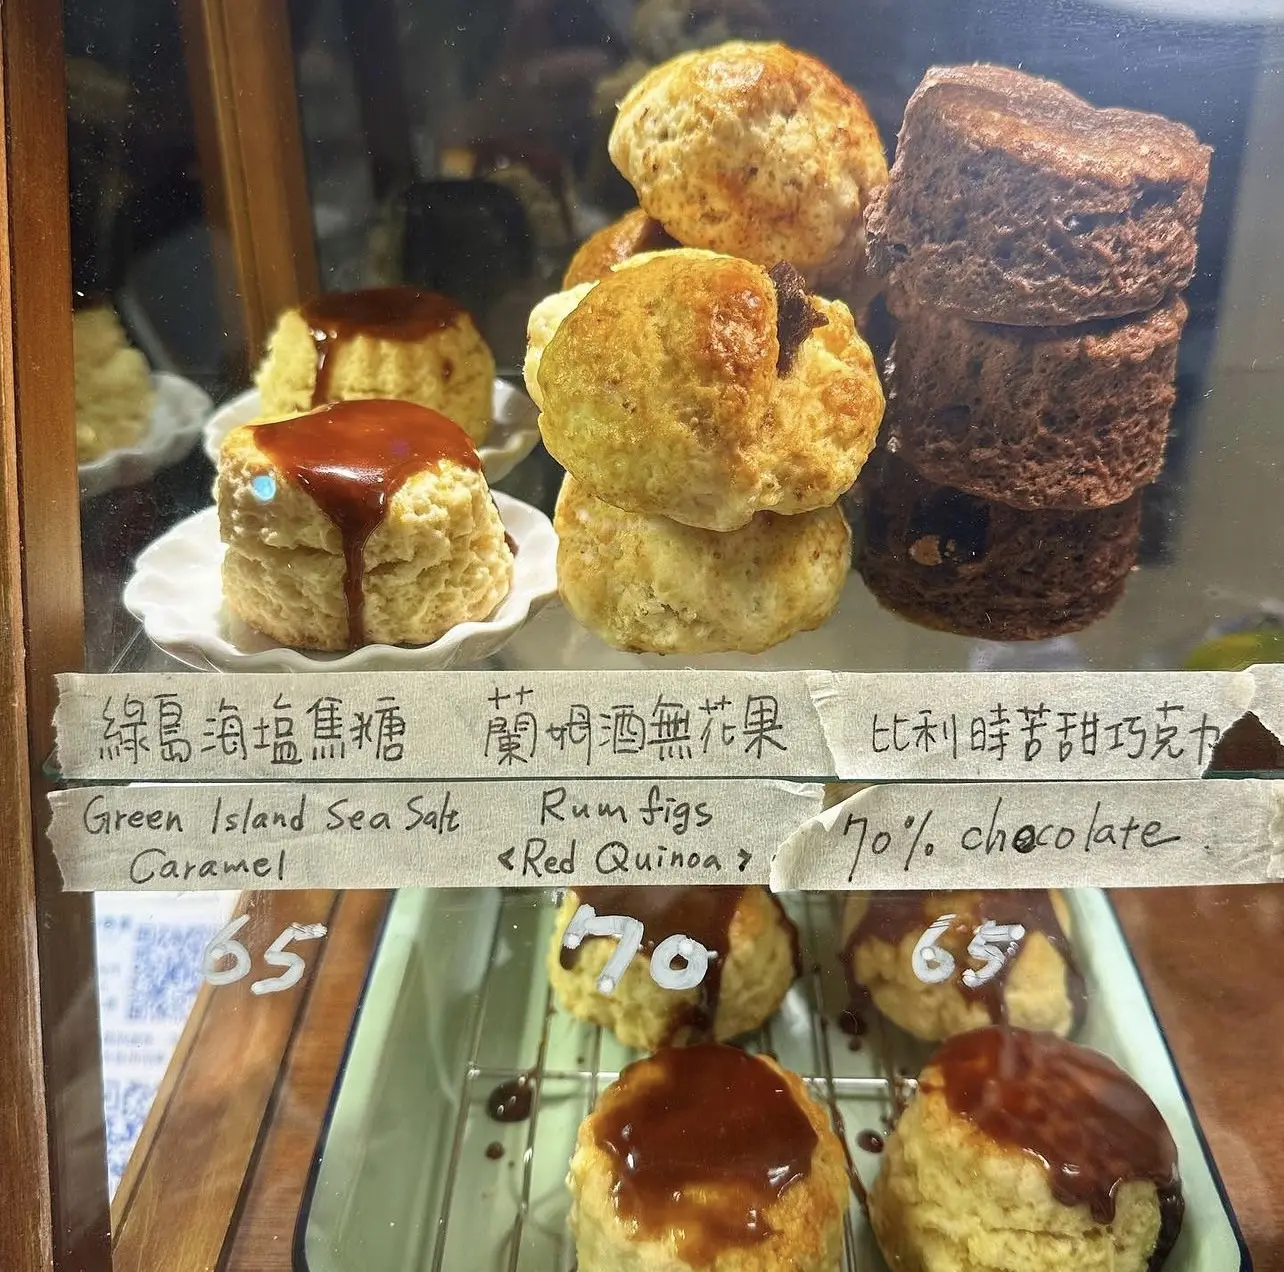 綠島海塩焦糖 蘭姆酒無花果 比利時苦甜巧克力
Green Island Sea Salt
Caramel
Rum figs
<Red Quinoa>
70% chocolate
65 70 65